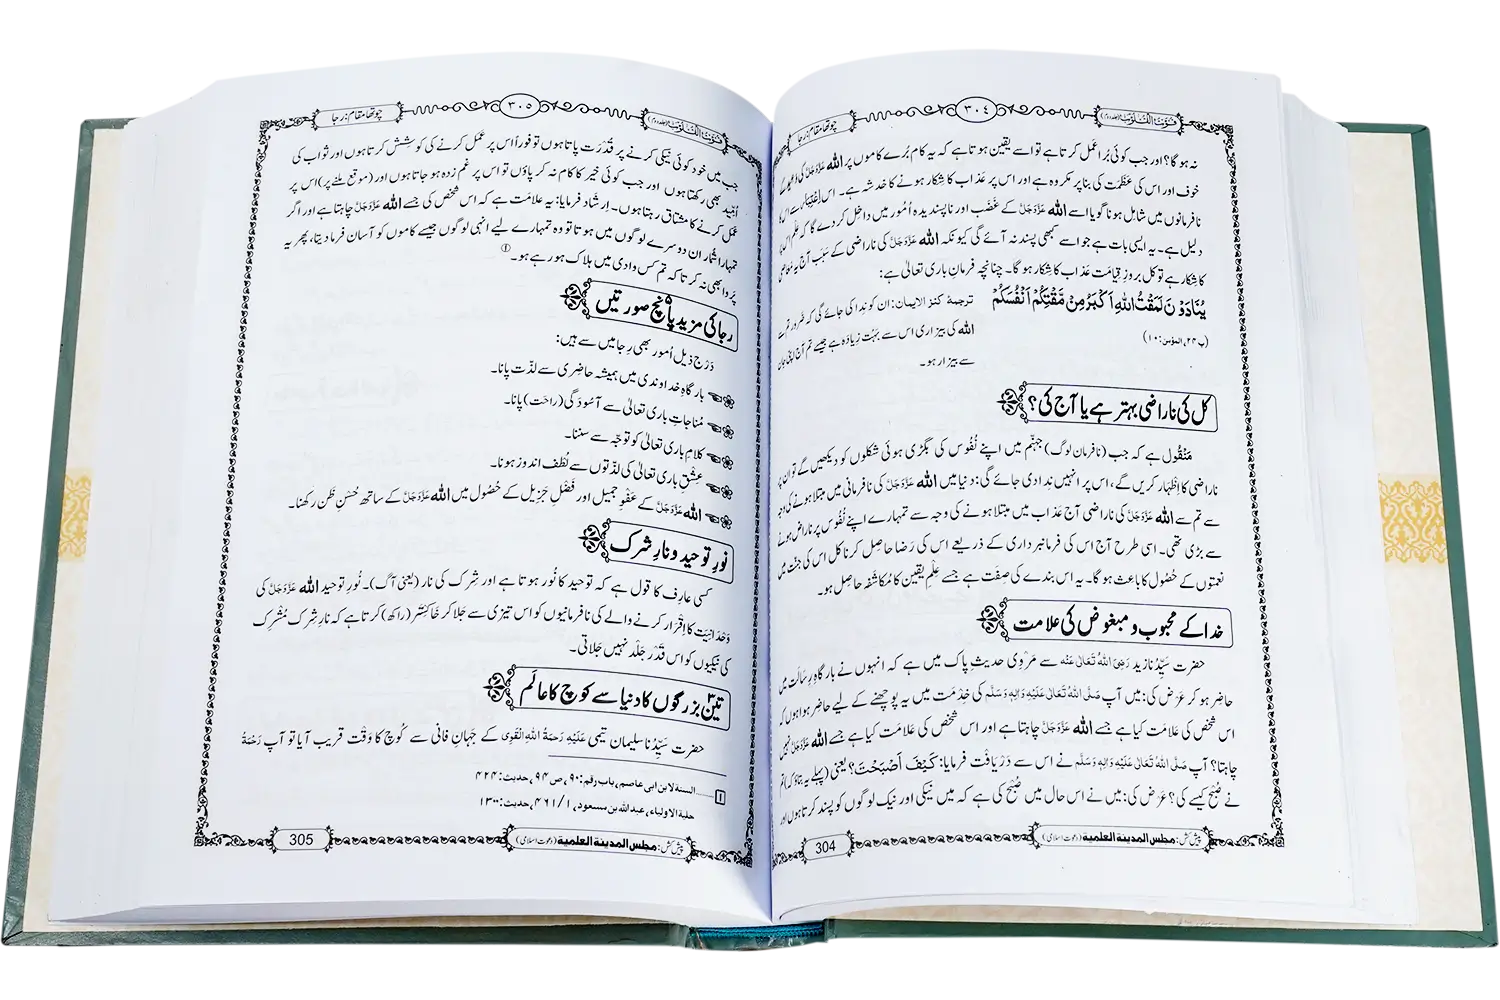 قُوْتُ الْقُلُوْب (جلد دوم)
٣٠٤
چوتھا مقام: رجا
نہ ہو گا؟ اور جب کوئی بُرا عمل کرتا ہے تو اسے یقین ہوتا ہے کہ یہ کام بُرے کاموں پر الله عَزَّوَجَلَّ کی
خوف اور اس کی عَظَمَت کی بنا پر مکروہ ہے اور اس پر عذاب کا شکار ہونے کا خدشہ ہے۔ اس
نافرمانوں میں شامل ہونا گویا اسے الله عَزَّوَجَلَّ کے غَضَب اور ناپسندیدہ اُمُور میں داخل کر دے گا کہ عِلْم اس
دلیل ہے۔ یہ ایسی بات ہے جو اسے کبھی پسند نہ آئے گی کیونکہ الله عَزَّوَجَلَّ کی ناراضی کے سَبَب آج یہ
کا شکار ہے تو کل بروزِ قِیامَت عَذاب کا شکار ہو گا۔ چنانچہ فرمانِ باری تعالیٰ ہے:
یُنَادَوْنَ لَمَقْتُ اللهِ اَكْبَرُ مِنْ مَّقْتِكُمْ اَنْفُسَكُمْ
(پ ٢٤، المؤمن: ١٠)
ترجمۂ کنز الایمان: ان کو نِدا کی جائے گی کہ ضرور تم سے
الله کی بیزاری اس سے بَہُت زِیادہ ہے جیسے تم آج اپنی جان
سے بیزار ہو۔
کل کی ناراضی بہتر ہے یا آج کی؟
مَنْقُول ہے کہ جب (نافرمان لوگ) جہنّم میں اپنے نُفُوس کی بگڑی ہوئی شکلوں کو دیکھیں گے تو ان پر
ناراضی کا اِظہار کریں گے، اس پر انہیں نِدا دی جائے گی: دنیا میں الله عَزَّوَجَلَّ کی نافرمانی میں مبتلا ہونے کی وجہ
سے تم سے الله عَزَّوَجَلَّ کی ناراضی آج عذاب میں مبتلا ہونے کی وجہ سے تمہارے اپنے نُفُوس پر ناراض ہونے
سے بڑی تھی۔ اسی طرح آج اس کی فرمانبرداری کے ذریعے اس کی رَضا حاصِل کرنا کل اس کی جنّت میں
نعمتوں کے حُصُول کا باعث ہو گا۔ یہ اس بندے کی صِفَت ہے جسے عِلْمِ یقین کا مُکاشَفَہ حاصِل ہو۔
خدا کے محبوب و مبغوض کی علامت
حضرت سَیِّدُنا زید رَضِیَ اللهُ تَعَالٰی عَنْه سے مَرْوِی حدیثِ پاک میں ہے کہ انہوں نے بارگاہِ رِسَالَت میں
حاضِر ہو کر عَرْض کی: میں آپ صَلَّی اللهُ تَعَالٰی عَلَیْهِ وَاٰلِهٖ وَسَلَّم کی خِدْمَت میں یہ پوچھنے کے لیے حاضِر ہوا ہوں کہ
اس شخص کی علامت کیا ہے جسے الله عَزَّوَجَلَّ چاہتا ہے اور اس شخص کی عَلامَت کیا ہے جسے الله عَزَّوَجَلَّ نہیں
چاہتا؟ آپ صَلَّی اللهُ تَعَالٰی عَلَیْهِ وَاٰلِهٖ وَسَلَّم نے اس سے دَرْیافْت فرمایا: كَیْفَ اَصْبَحْتَ؟ یعنی (پہلے یہ بتاؤ کہ) تم
نے صُبْح کیسے کی؟ عَرْض کی: میں نے اس حال میں صُبْح کی ہے کہ میں نیکی اور نیک لوگوں کو پسند کرتا ہوں اور
پیش کش: مجلس المدینة العلمیة (دعوت اسلامی)
304
قُوْتُ الْقُلُوْب (جلد دوم)
٣٠٥
چوتھا مقام: رجا
جب میں خود کوئی نیکی کرنے پر قُدْرَت پاتا ہوں تو فوراً اس پر عمل کرنے کی کوشش کرتا ہوں اور ثواب کی
اُمِّید بھی رکھتا ہوں اور جب کوئی خیر کا کام نہ کر پاؤں تو اس پر غم زدہ ہو جاتا ہوں اور (موقع ملنے پر) اس پر
عمل کرنے کا مشتاق رہتا ہوں۔ اِرشاد فرمایا: یہ علامت ہے کہ اس شخص کی جسے الله عَزَّوَجَلَّ چاہتا ہے اور اگر
تمہارا شُمار ان دوسرے لوگوں میں ہوتا تو وہ تمہارے لیے انہی لوگوں جیسے کاموں کو آسان فرما دیتا، پھر یہ
پَروا بھی نہ کرتا کہ تم کس وادی میں ہلاک ہو رہے ہو۔ ①
رجا کی مزید پانچ صورتیں
دَرْج ذیل اُمور بھی رِجا میں سے ہیں:
بارگاہِ خداوندی میں ہمیشہ حاضِری سے لذّت پانا۔
مُناجاتِ باری تعالیٰ سے آسُودَگی (راحَت) پانا۔
کلامِ باری تعالیٰ کو توجّہ سے سننا۔
عِشْقِ باری تعالیٰ کی لذّتوں سے لُطف اندوز ہونا۔
الله عَزَّوَجَلَّ کے عَفْوِ جمیل اور فَضْلِ جَزِیل کے حُصُول میں الله عَزَّوَجَلَّ کے ساتھ حُسْنِ ظَن رکھنا۔
نورِ توحید و نارِ شرک
کسی عارِف کا قول ہے کہ توحید کا نُور ہوتا ہے اور شِرک کی نار (یعنی آگ)۔ نُورِ توحید الله عَزَّوَجَلَّ کی
وَحْدانِیَّت کا اِقْرَار کرنے والے کی نافرمانیوں کو اس تیزی سے جَلا کر خَاکِسْتَر (راکھ) کرتا ہے کہ نارِ شِرک مُشْرِک
کی نیکیوں کو اس قَدْر جَلْد نہیں جَلاتی۔
تین بزرگوں کا دنیا سے کوچ کا عالَم
حضرت سَیِّدُنا سلیمان تیمی عَلَیْهِ رَحمَةُ اللهِ الْقَوِی کے جَہانِ فانی سے کُوچ کا وَقْت قریب آیا تو آپ رَحْمَةُ
١ ...... السنة لابن ابی عاصم، باب رقم: ٩٠، ص ٩٤، حدیث: ٤٢٤
حلیة الاولیاء، عبدالله بن مسعود، ١/ ٤٦١، حدیث: ١٣٠٠
پیش کش: مجلس المدینة العلمیة (دعوت اسلامی)
305